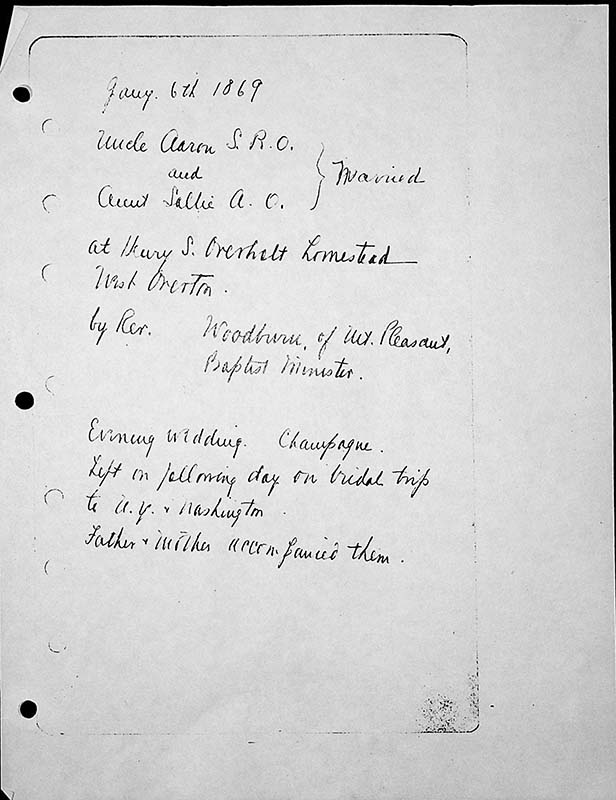 Jany. 6th 1869
Uncle Aaron S. R. O.
and
Aunt Sallie A. O.
} Married
at Henry S. Overholt homestead
West Overton.
by Rev. Woodburn, of Mt. Pleasant,
Baptist Minister.
Evening wedding. Champagne.
Left on following day on bridal trip
to N. Y. & Washington.
Father & Mother accompanied them.